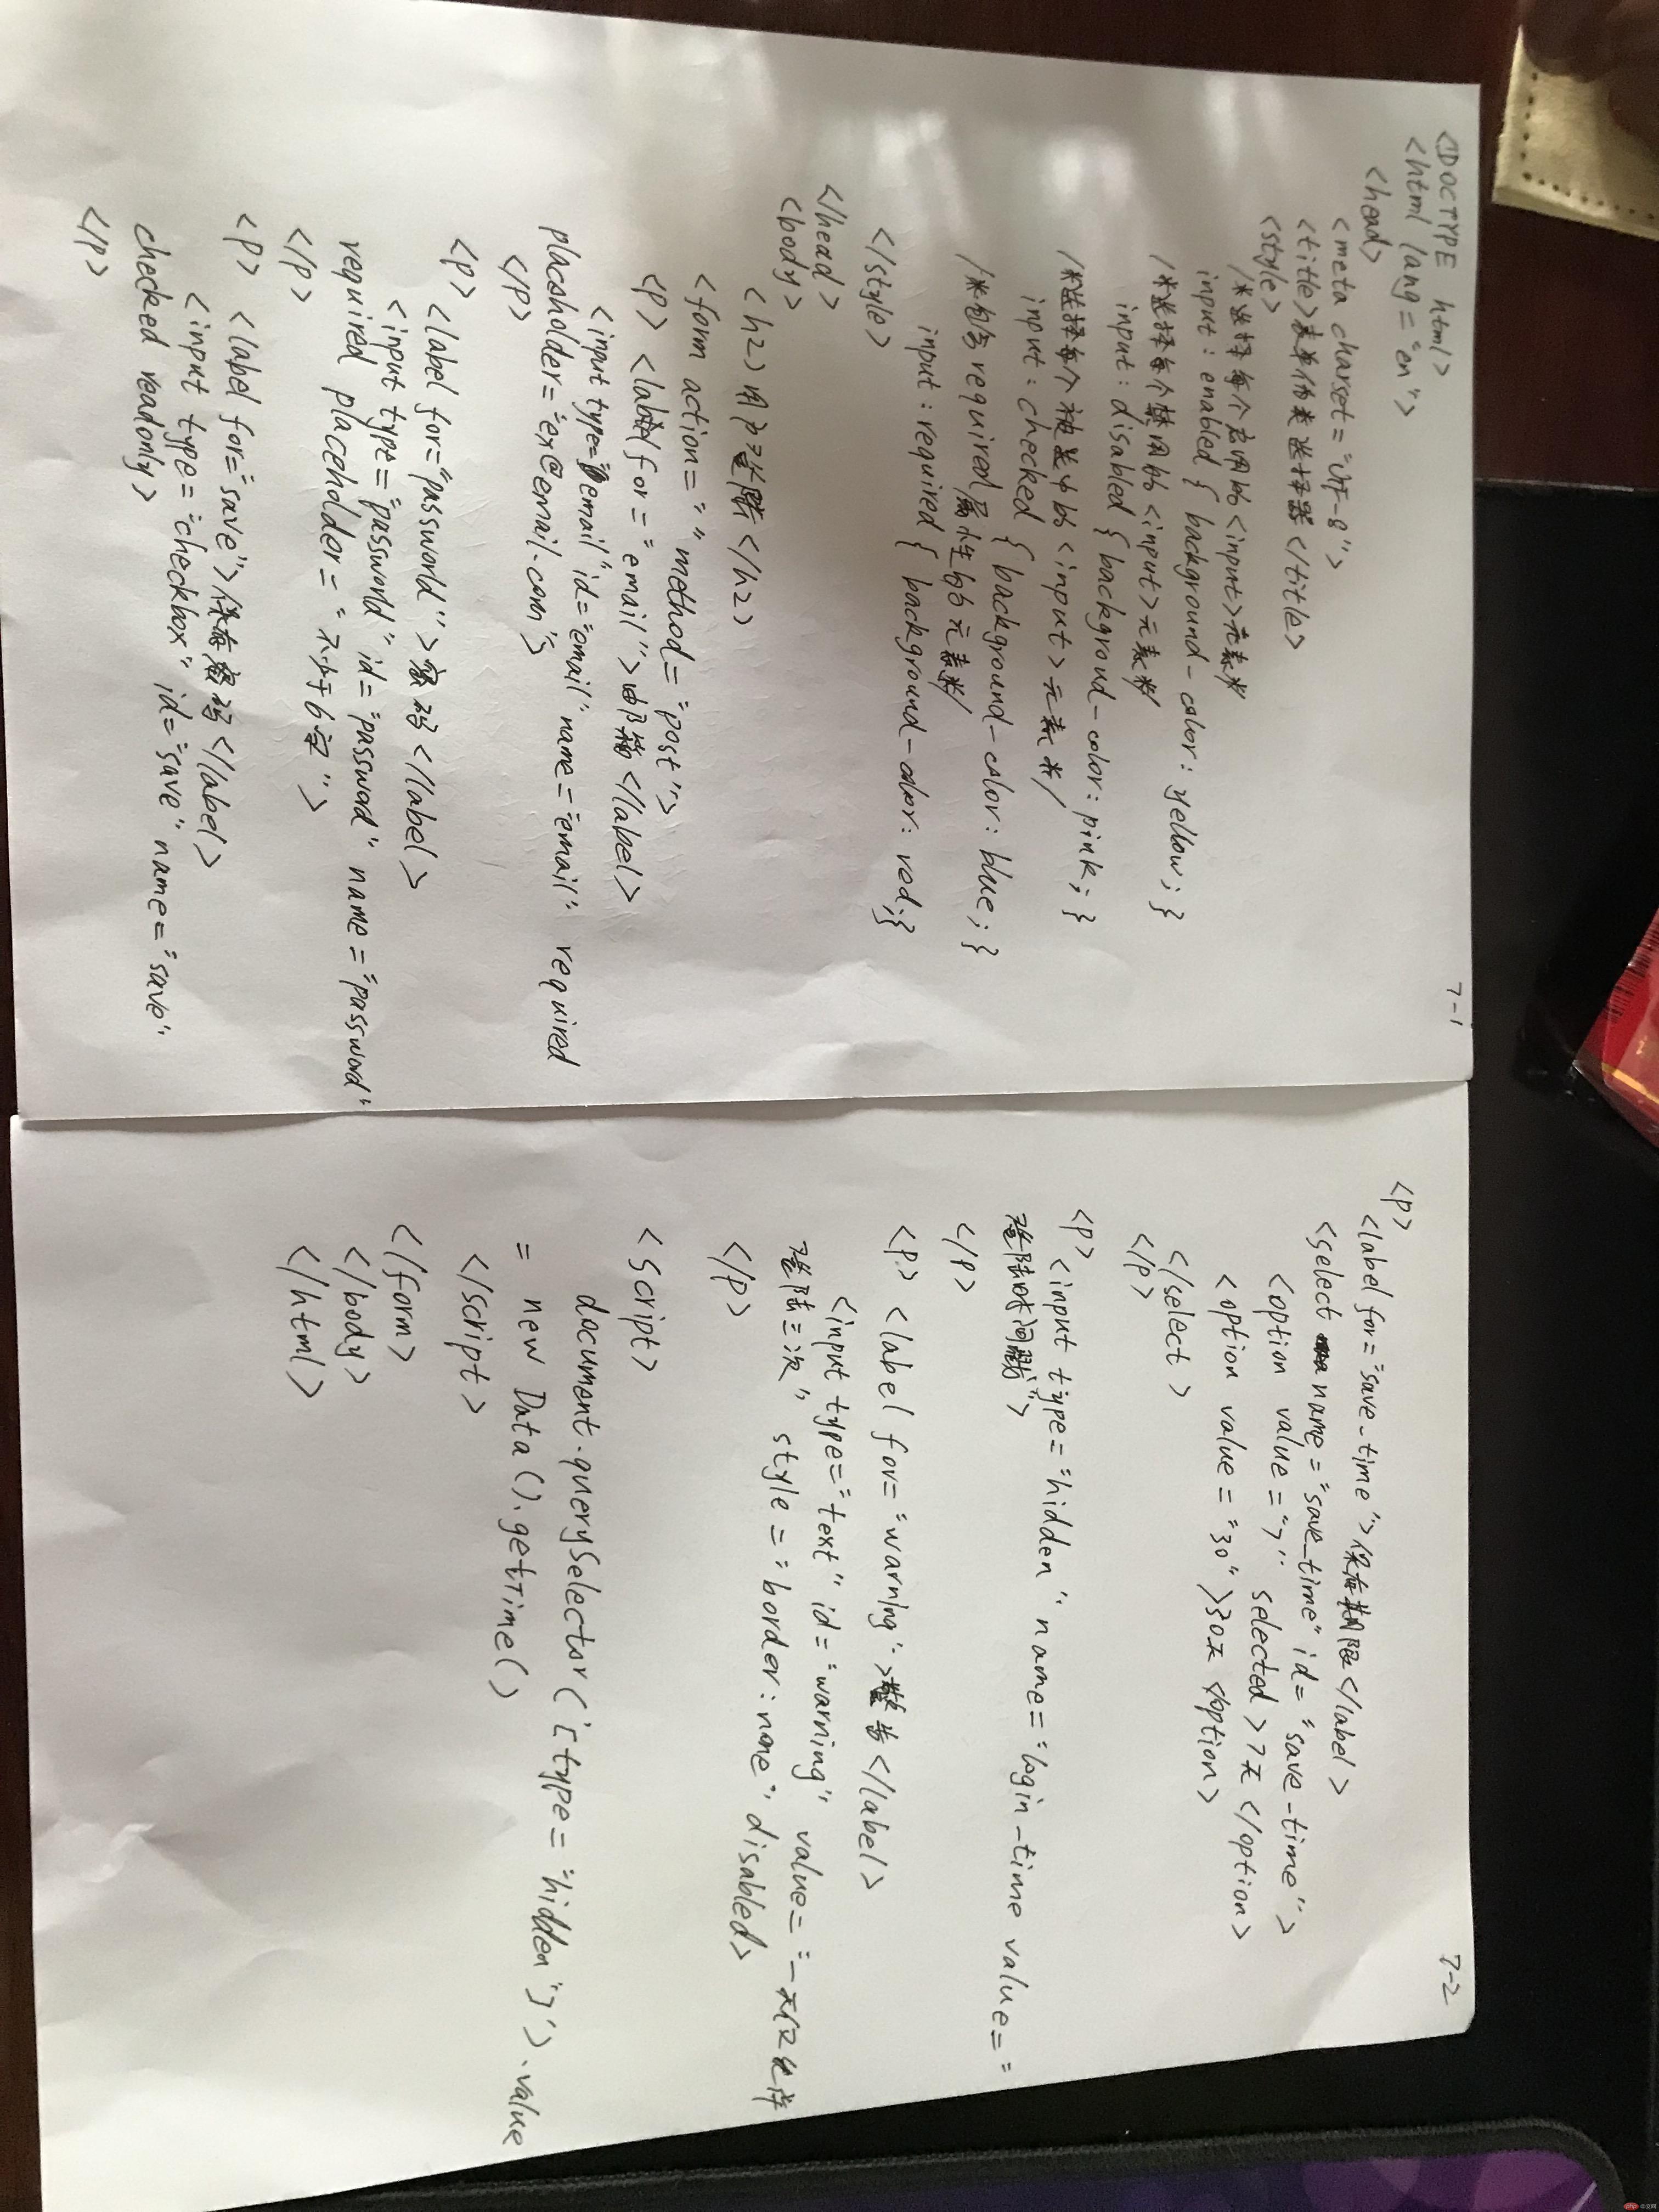 7-1
<DOCTYPE html>
<html lang="en">
<head>
<meta charset="UTF-8">
<title>表单伪类选择器</title>
<style>
/*选择每个启用的<input>元素*
input:enabled { background-color: yellow; }
/*选择每个禁用的<input>元素*/
input:disabled { background-color: pink; }
/*选择每个被选中的<input>元素*/
input:checked { background-color: blue; }
/*包含required属性的元素*/
input:required { background-color: red;}
</style>
</head>
<body>
<h2>用户登陆</h2>
<form action="" method="post">
<p> <label for="email">邮箱</label>
<input type="email" id="email" name="email" required
placesholder="ex@email.com">
</p>
<p> <label for="password">密码</label>
<input type="password" id="passwod" name="password"
required placeholder="不少于6字">
</p>
<p> <label for="save">保存密码</label>
<input type="checkbox" id="save" name="save"
checked readonly>
</p>
7-2
<p>
<label for="save-time">保存期限</label>
<select name="save-time" id="save-time">
<option value="7" selected>7天</option>
<option value="30">30天</option>
</select>
</p>
<p> <input type="hidden" name="login-time value="
登陆时间戳">
</p>
<p> <label for="warning">警告</label>
<input type="text" id="warning" value="一天仅允许
登陆三次" style="border:none" disabled>
</p>
<script>
document.querySelector('[type="hidden"]').value
= new Data().getTime()
</script>
</form>
</body>
</html>
php 中文网